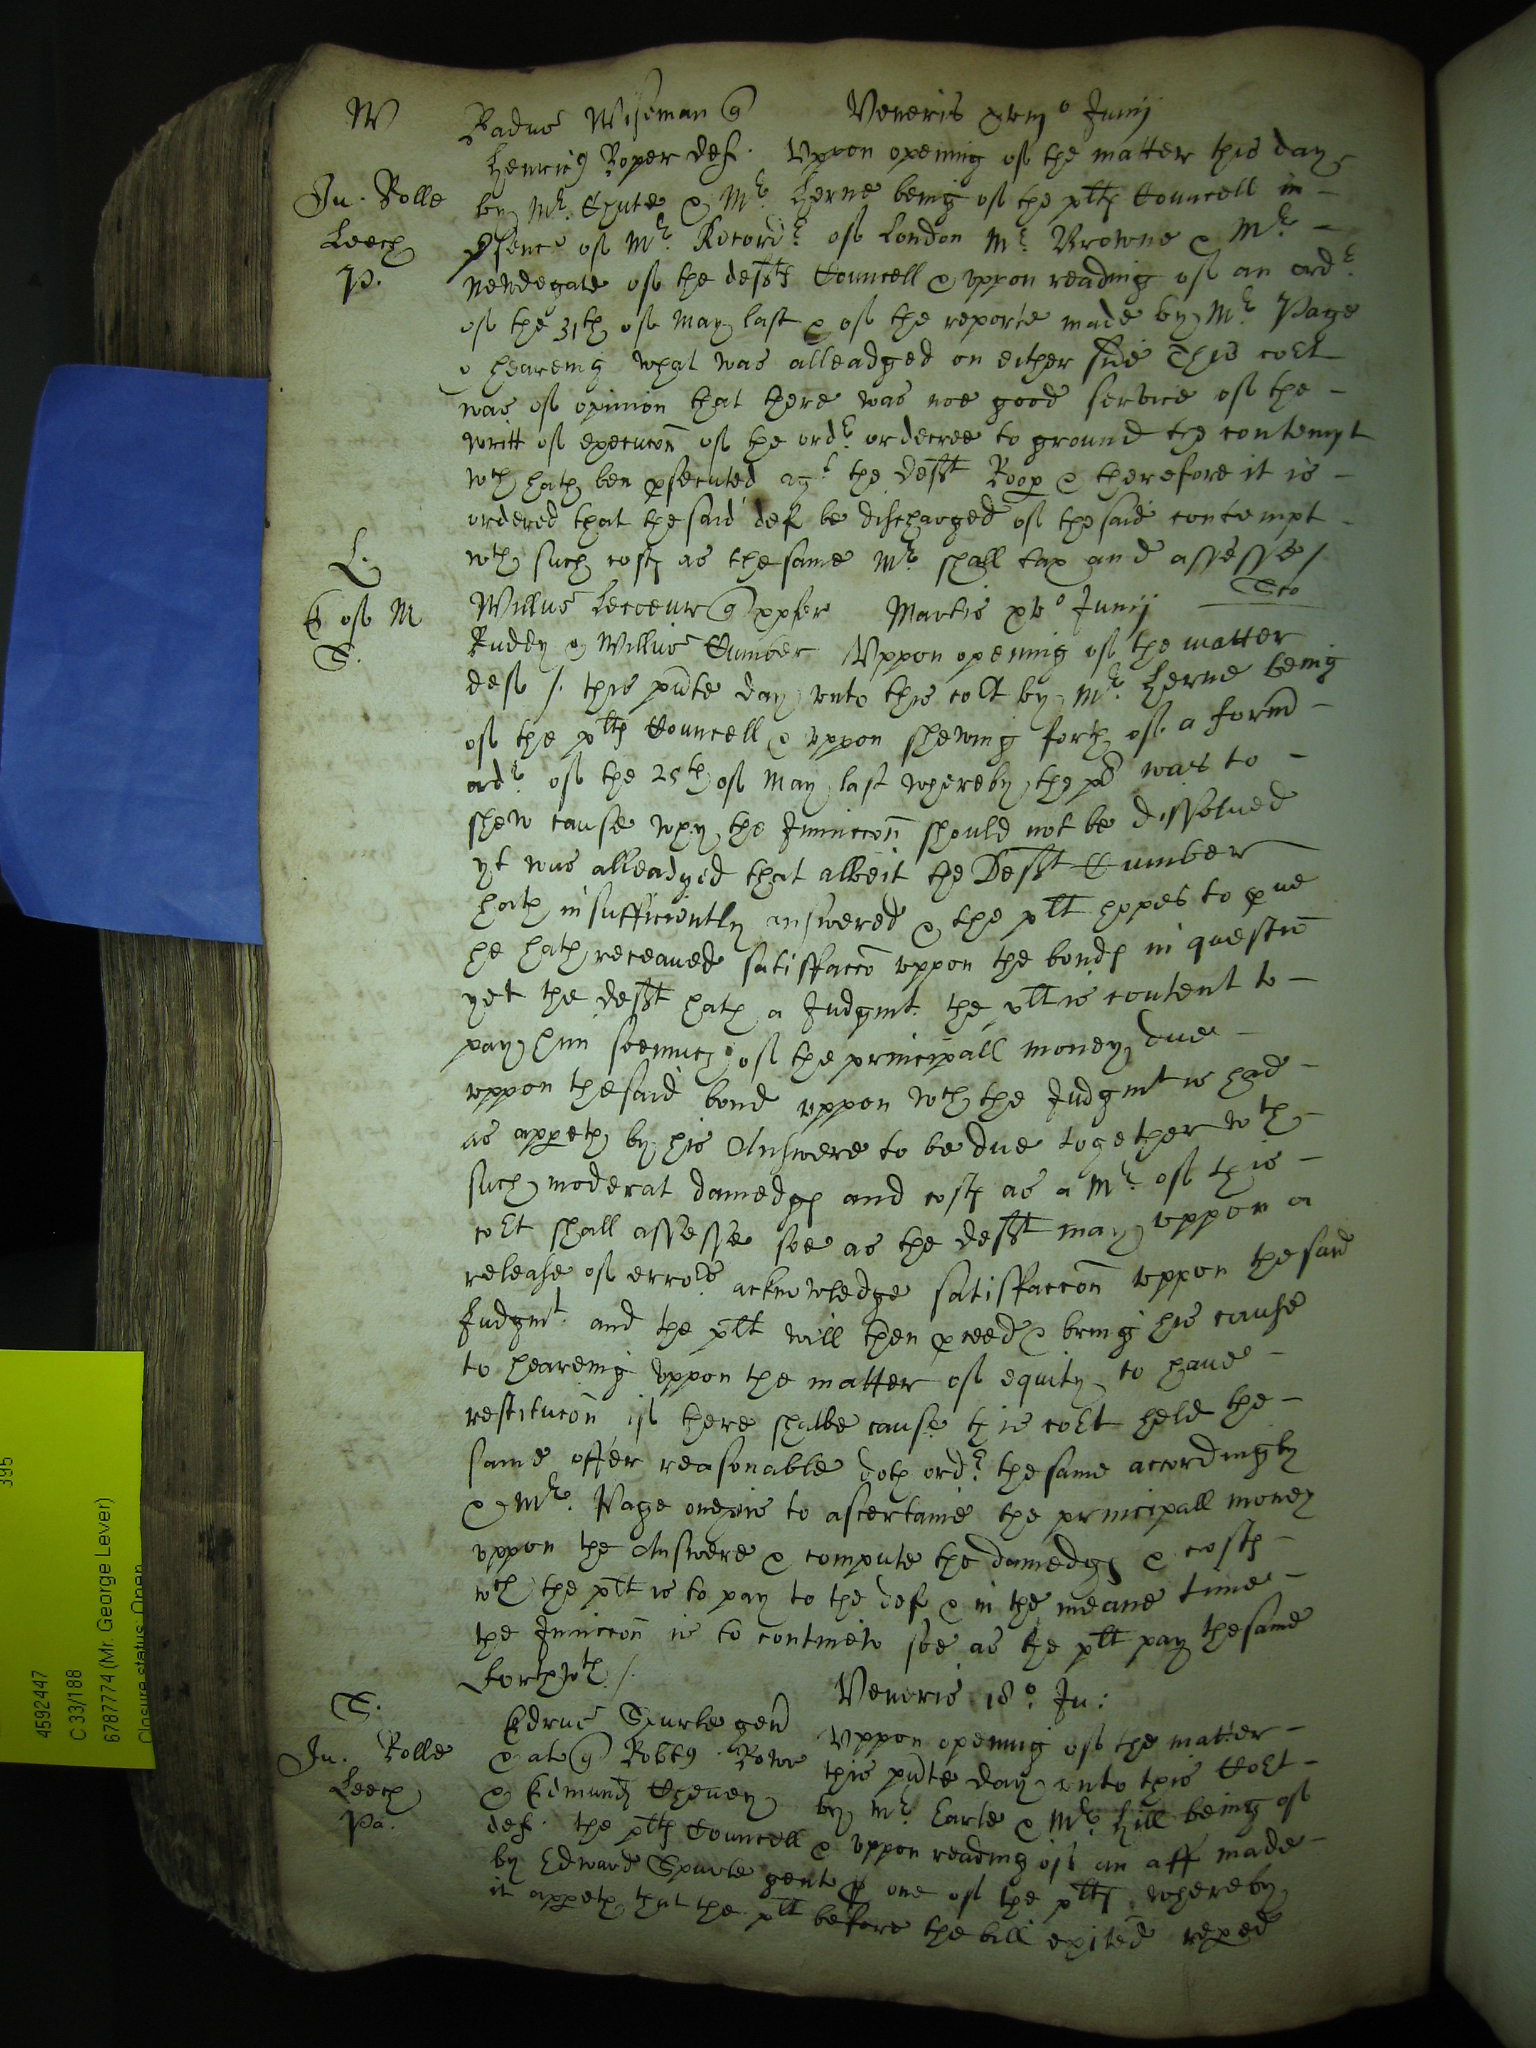 W
Radus Wiseman q
Veneris xviijo Junij
Henric9 Roper def. Uppon opening of the matter this day
Ju. Rolle
by Mr. Chute & Mr. Herne being of the plts Councell in
Leech
psence of Mr. Recordr. of London Mr. Browne & Mr.
P.
Newdegate of the defts Councell & uppon reading of an ordr.
of the 31th of May last & of the reporte made by Mr. Page
& heareing what was alleadged on either side This cort
was of opinion that there was noe good service of the
writt of execucon of the ordr. or decree to ground the contempt
wch hath ben psecuted agt the deft Roop & therefore it is
ordered that the said def be discharged of the said contempt
L.
wth such costs as the same Mr. shall tax and assesse /
Willus Leceur q
Martis xvo Junij
E of M
Ruddy & Willus Cumber Uppon opening of the matter
S.
def /. this pnte day unto this cort by Mr. Herne being
of the plts Councell & uppon shewing forth of a form
ordr. of the 25th of May last whereby the pl was to
shew cause why the Iniunccon should not be dissolued
yt was alleadged that albeit the Deft Cumber
hath insufficiently answered & the plt hopes to pue
he hath receaued satisfaccō uppon the bonds in questiō
yet the deft hath a Judgmt. the plt is content to
pay him soemuch of the principall money due
uppon the said bond uppon wch the Judgmt is had
as appeth by his Answere to be due together wth
such moderat damedgs and costs as a Mr. of this
cort shall assesse soe as the deft may uppon a
release of errors acknowledge satisfaccon uppon the said
Judgmt. and the plt will then pceed & bring his cause
to heareing uppon the matter of equity to haue
restitucon if there shalbe cause this cort held the
same offer reasonable doth ordr. the same accordingly
& Mr. Page is to ascertaine the principall money
uppon the Answere & compute the damedgs & costs
wch the plt is to pay to the def & in the meane time
the Iniunccon is to continew soe as the plt pay the same
forthwth. /.
S.
Veneris 18o. Ju:
Edrus Spurle gen
Uppon opening of the matter
Ju. Rolle
& al q Robtus Rowe this pnte day unto this Cort
Leech
& Edmund Cheuey by Mr. Earle & Mr. Hill being of
Pa.
def. the plts Councell & uppon reading of an aff made
by Edward Spurle gent one of the plts whereby
it appeth that the plt before the bill exited
4592447
C 33/188
6787774 (Mr. George Lever)
Closure status: Open
395